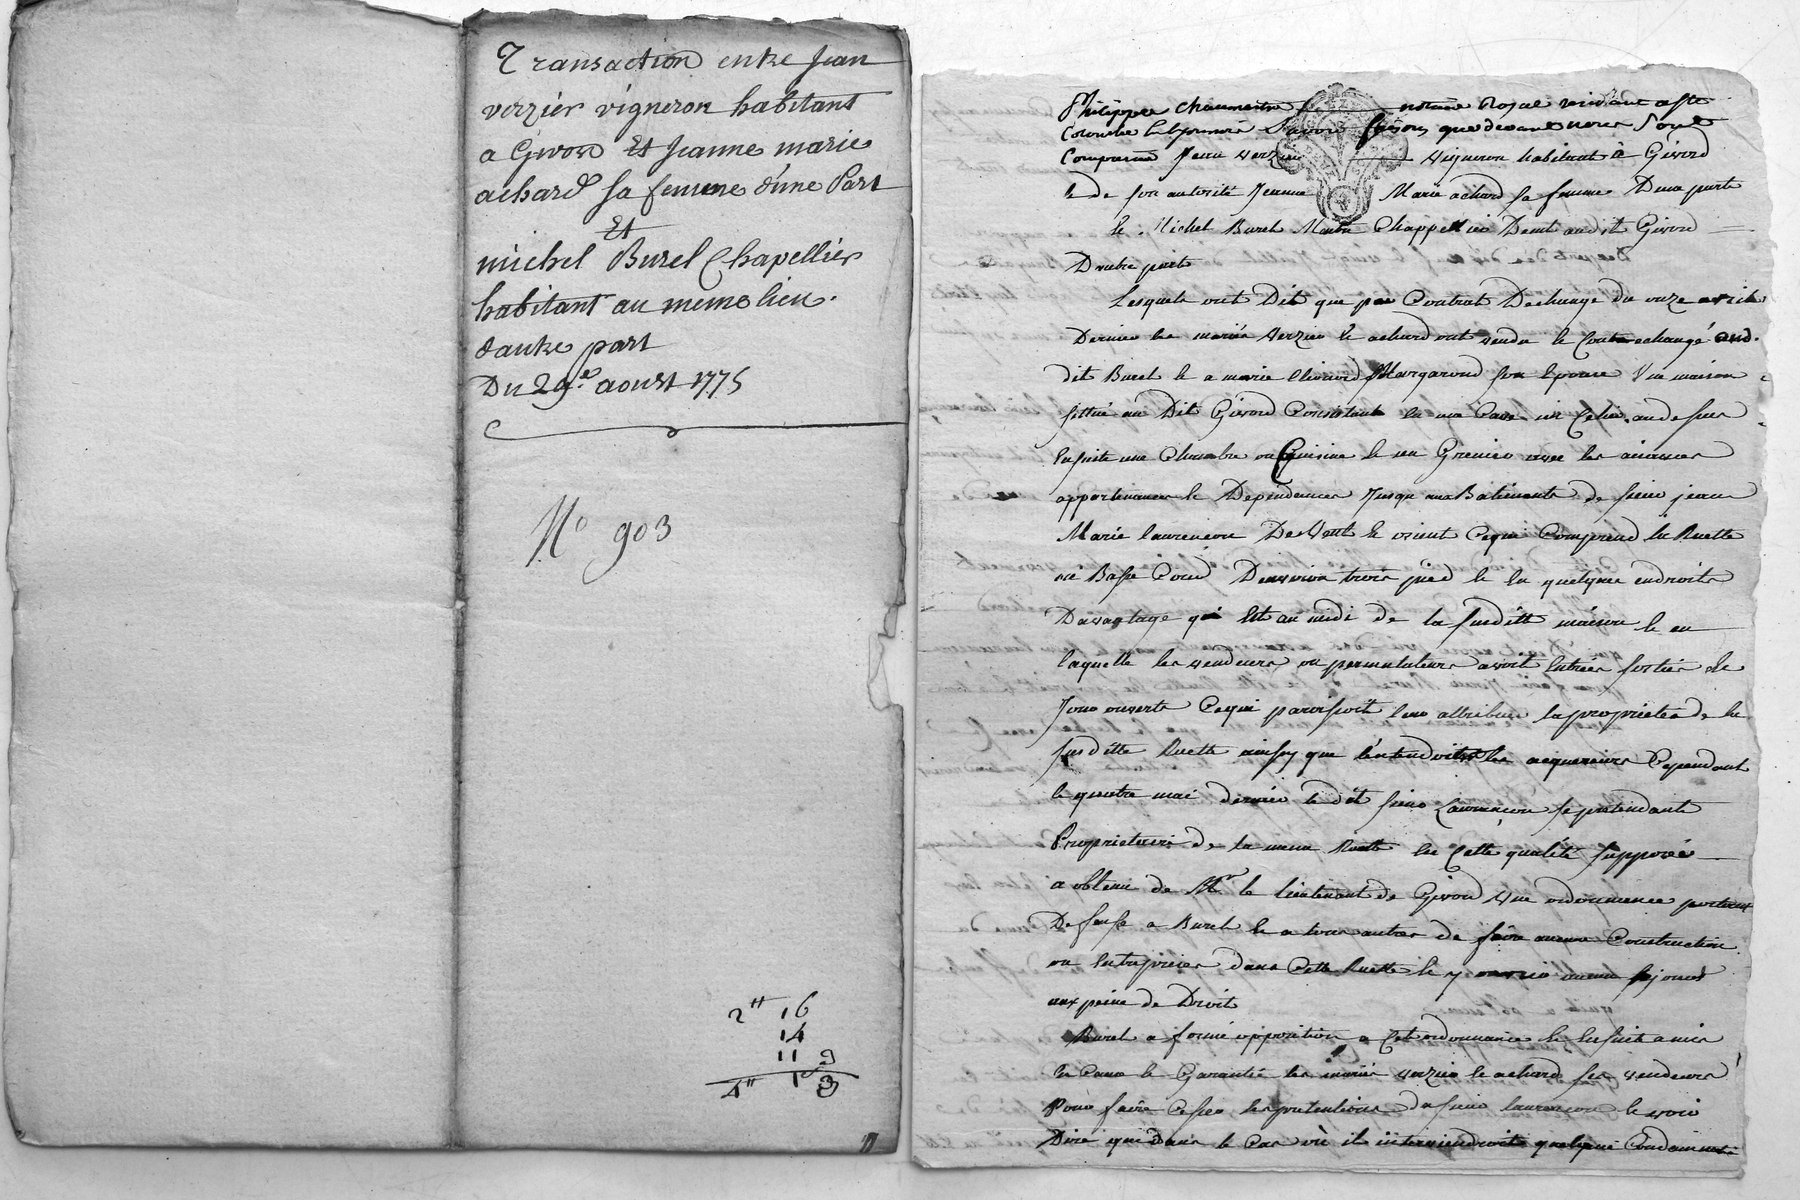 Transaction entre Jean
verzier vigneron habitant
a Givord Et Jeanne marie
achard sa femme d'une Part
Et
michel Burel Chapellier
habitant au meme lieu.
dautre part
Du 29.e aoust 1775
No 903
2" 16
14
11 9
4" 1 3
Philippe chaumartin notaire Royal
Savoir faisons que devant nous sont
Comparus Jean verzier vigneron habitant à Givord
& de son autorité Jeanne Marie achard sa femme Dune part
& Michel Burel Maitre Chappellier Demt audit Givord
Dautre part
Lesquels ont Dit que par Contrat Dechange du onze avril
Dernier les mariés verzier & achard ont vendu & Contrechangé aud.
dit Burel & a marie Margarond son Epouse Une maison
sittué au Dit Givord Consistant en une Cave un Celier au dessus
Ensuite une Chambre ou Cuisine & un Grenier avec les aisances
appartenances & Dependances Jusqu aux Batiments de sieur jean
Marie laurençon De vent & orient Ceque Comprend la Ruette
ou Basse Cour Denviron trois pied & en quelques endroits
Davantage qui Est au midi de la susditte maison & en
laquelle les vendeurs ou permutateurs avoit Entrées sorties &
Jour ouverts Cequi paroissoit leur attribuer la proprietée de la
susditte Ruette ainsy que l'entendoit les acquereurs Cependant
le quatre mai dernier le dit sieur Laurençon se pretendant
Proprietaire de la meme Ruette En Cette qualité supposée
a obtenu de Mr le lieutenant de Givord Une ordonnance portant
Defense a Burel & a tous autres de faire aucune Construction
ou Entreprises dans Cette Ruette & y
aux peine de Droit
Burel a formé opposition a Cet ordonnance & Ensuite a mis
En Cause & Garantie les mariés verzier & achard ses vendeurs
Pour faire Cesser les pretentions du sieur laurençon & voir
Dire que dans le Cas où il interviendroit quelque Condamnation